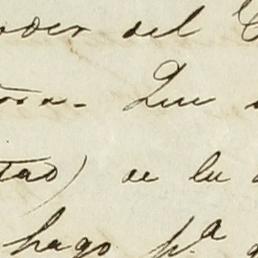 oder del C
tora. Que
tad) de la
hago pª